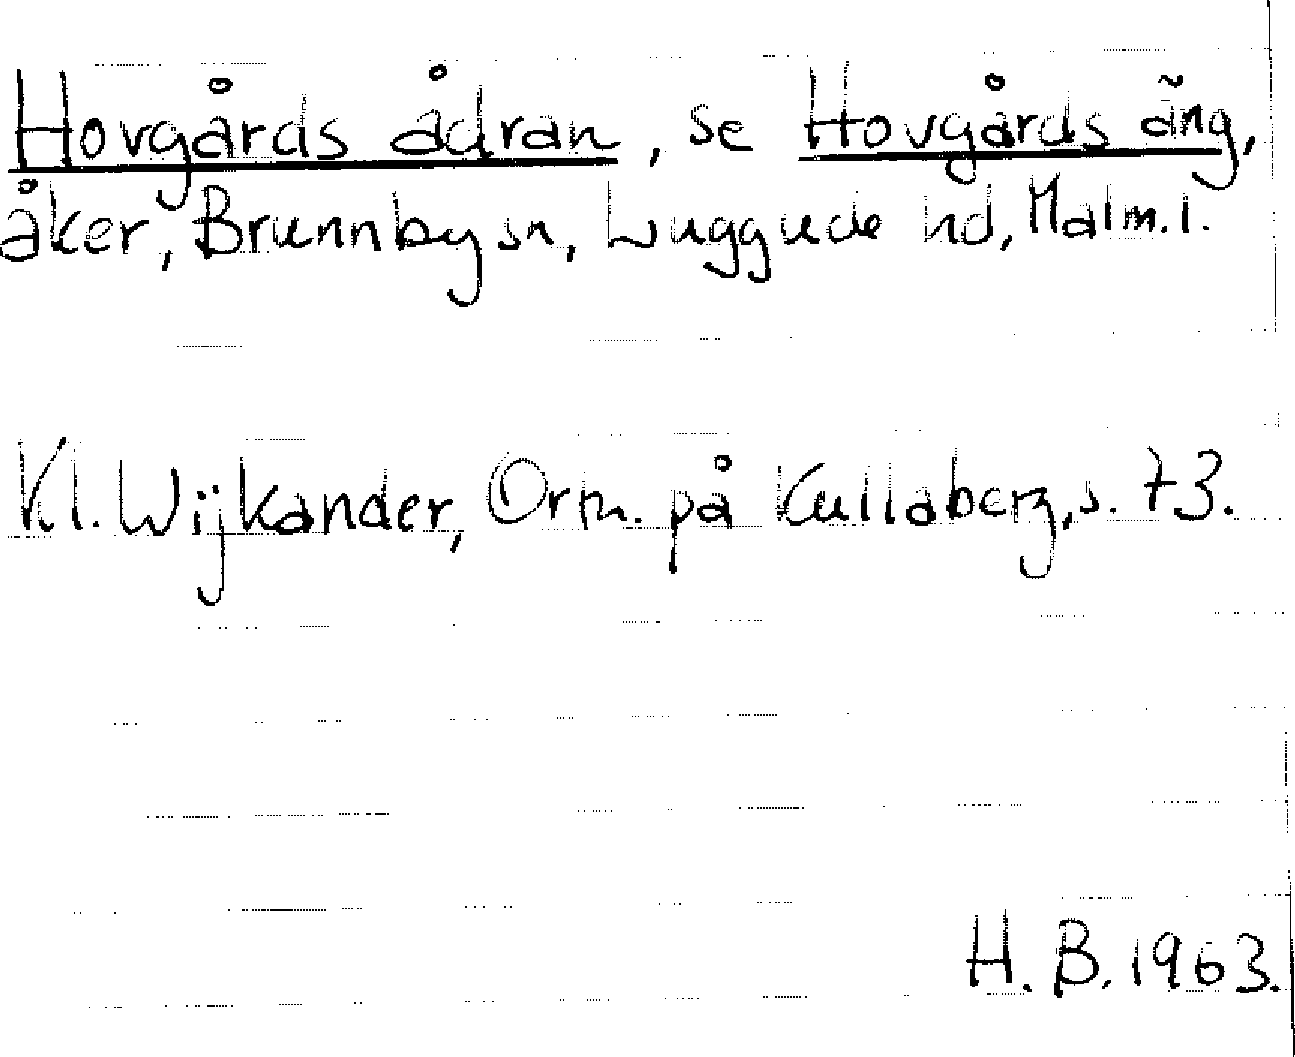 Hovgårds ådran, se Hovgårds äng,
åker, Brunnby sn, Luggude hd, Malm. l.
Kl. Wijkander, Ortn. på Kullaberg, s. 73.
H. B. 1963.